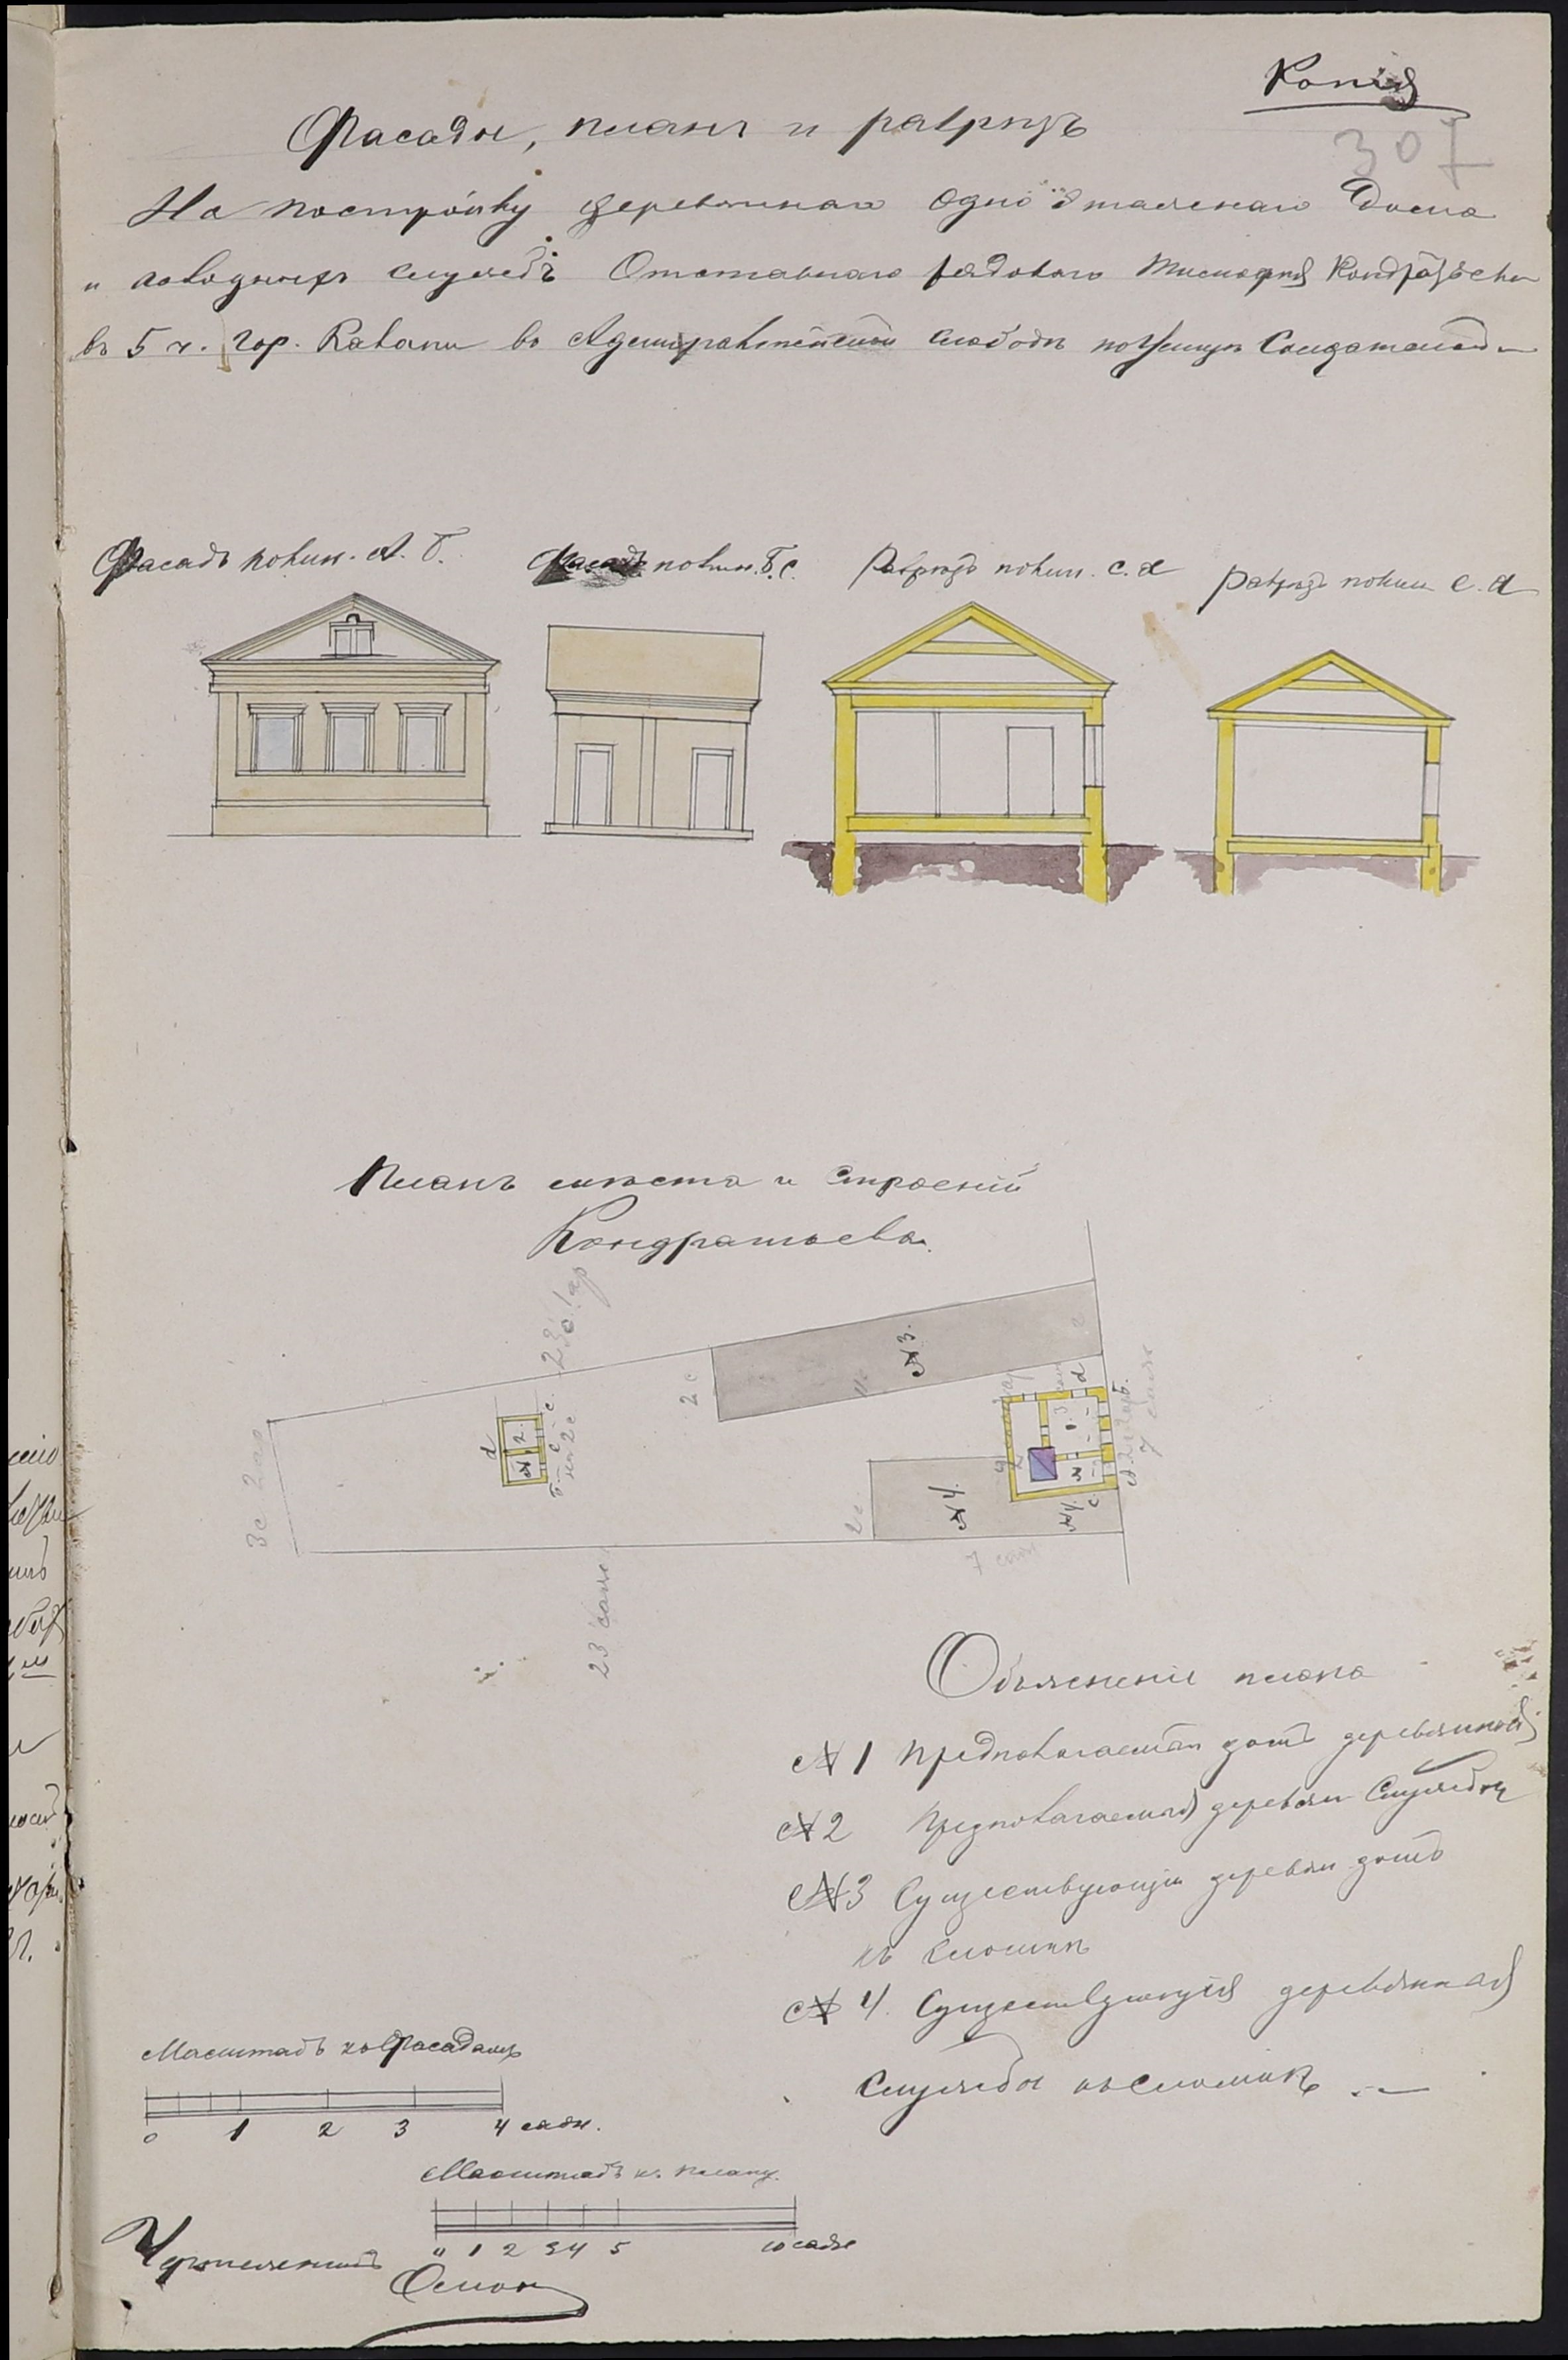 Копія
307
Фасады, планъ и разрѣзъ
На постройку деревяннаго одноэтажнаго дома
и холодныхъ службъ Отставнаго рядоваго Тимофея Кондратьева
въ 5 ч. гор. Казани въ Адмиралтейской слободѣ по улицѣ Солдатской
Фасадъ по лин. А. Б.
Фасадъ по лин. Б. С.
Разрѣзъ по лин. с. d
Разрѣзъ по лин с. d
Планъ мѣста и строеній
Кондратьева.
23 с. 1 ар
№ 3.
2 с
11 с
3 с 2 ар
d
№ 2.
с.
2 с
№ 4.
№ 1.
А.
Б.
d
с.
7 саж
7 саж
23 саж
Объясненіе плана
№ 1 Предполагаемый домъ деревянной
№ 2 Предполагаемыя деревян Службы
№ 3 Существующій деревян домъ
къ сломкѣ
№ 4. Существующія деревянная
Службы къ сломкѣ
Масштабъ къ Фасадамъ
0 1 2 3 4 саж.
Масштабъ къ плану.
0 1 2 3 4 5 10 саж